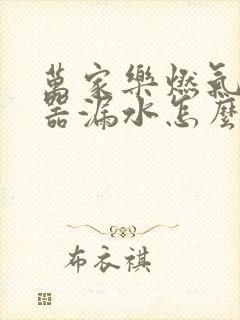 萬家樂燃氣
器漏水怎麼
布衣祺